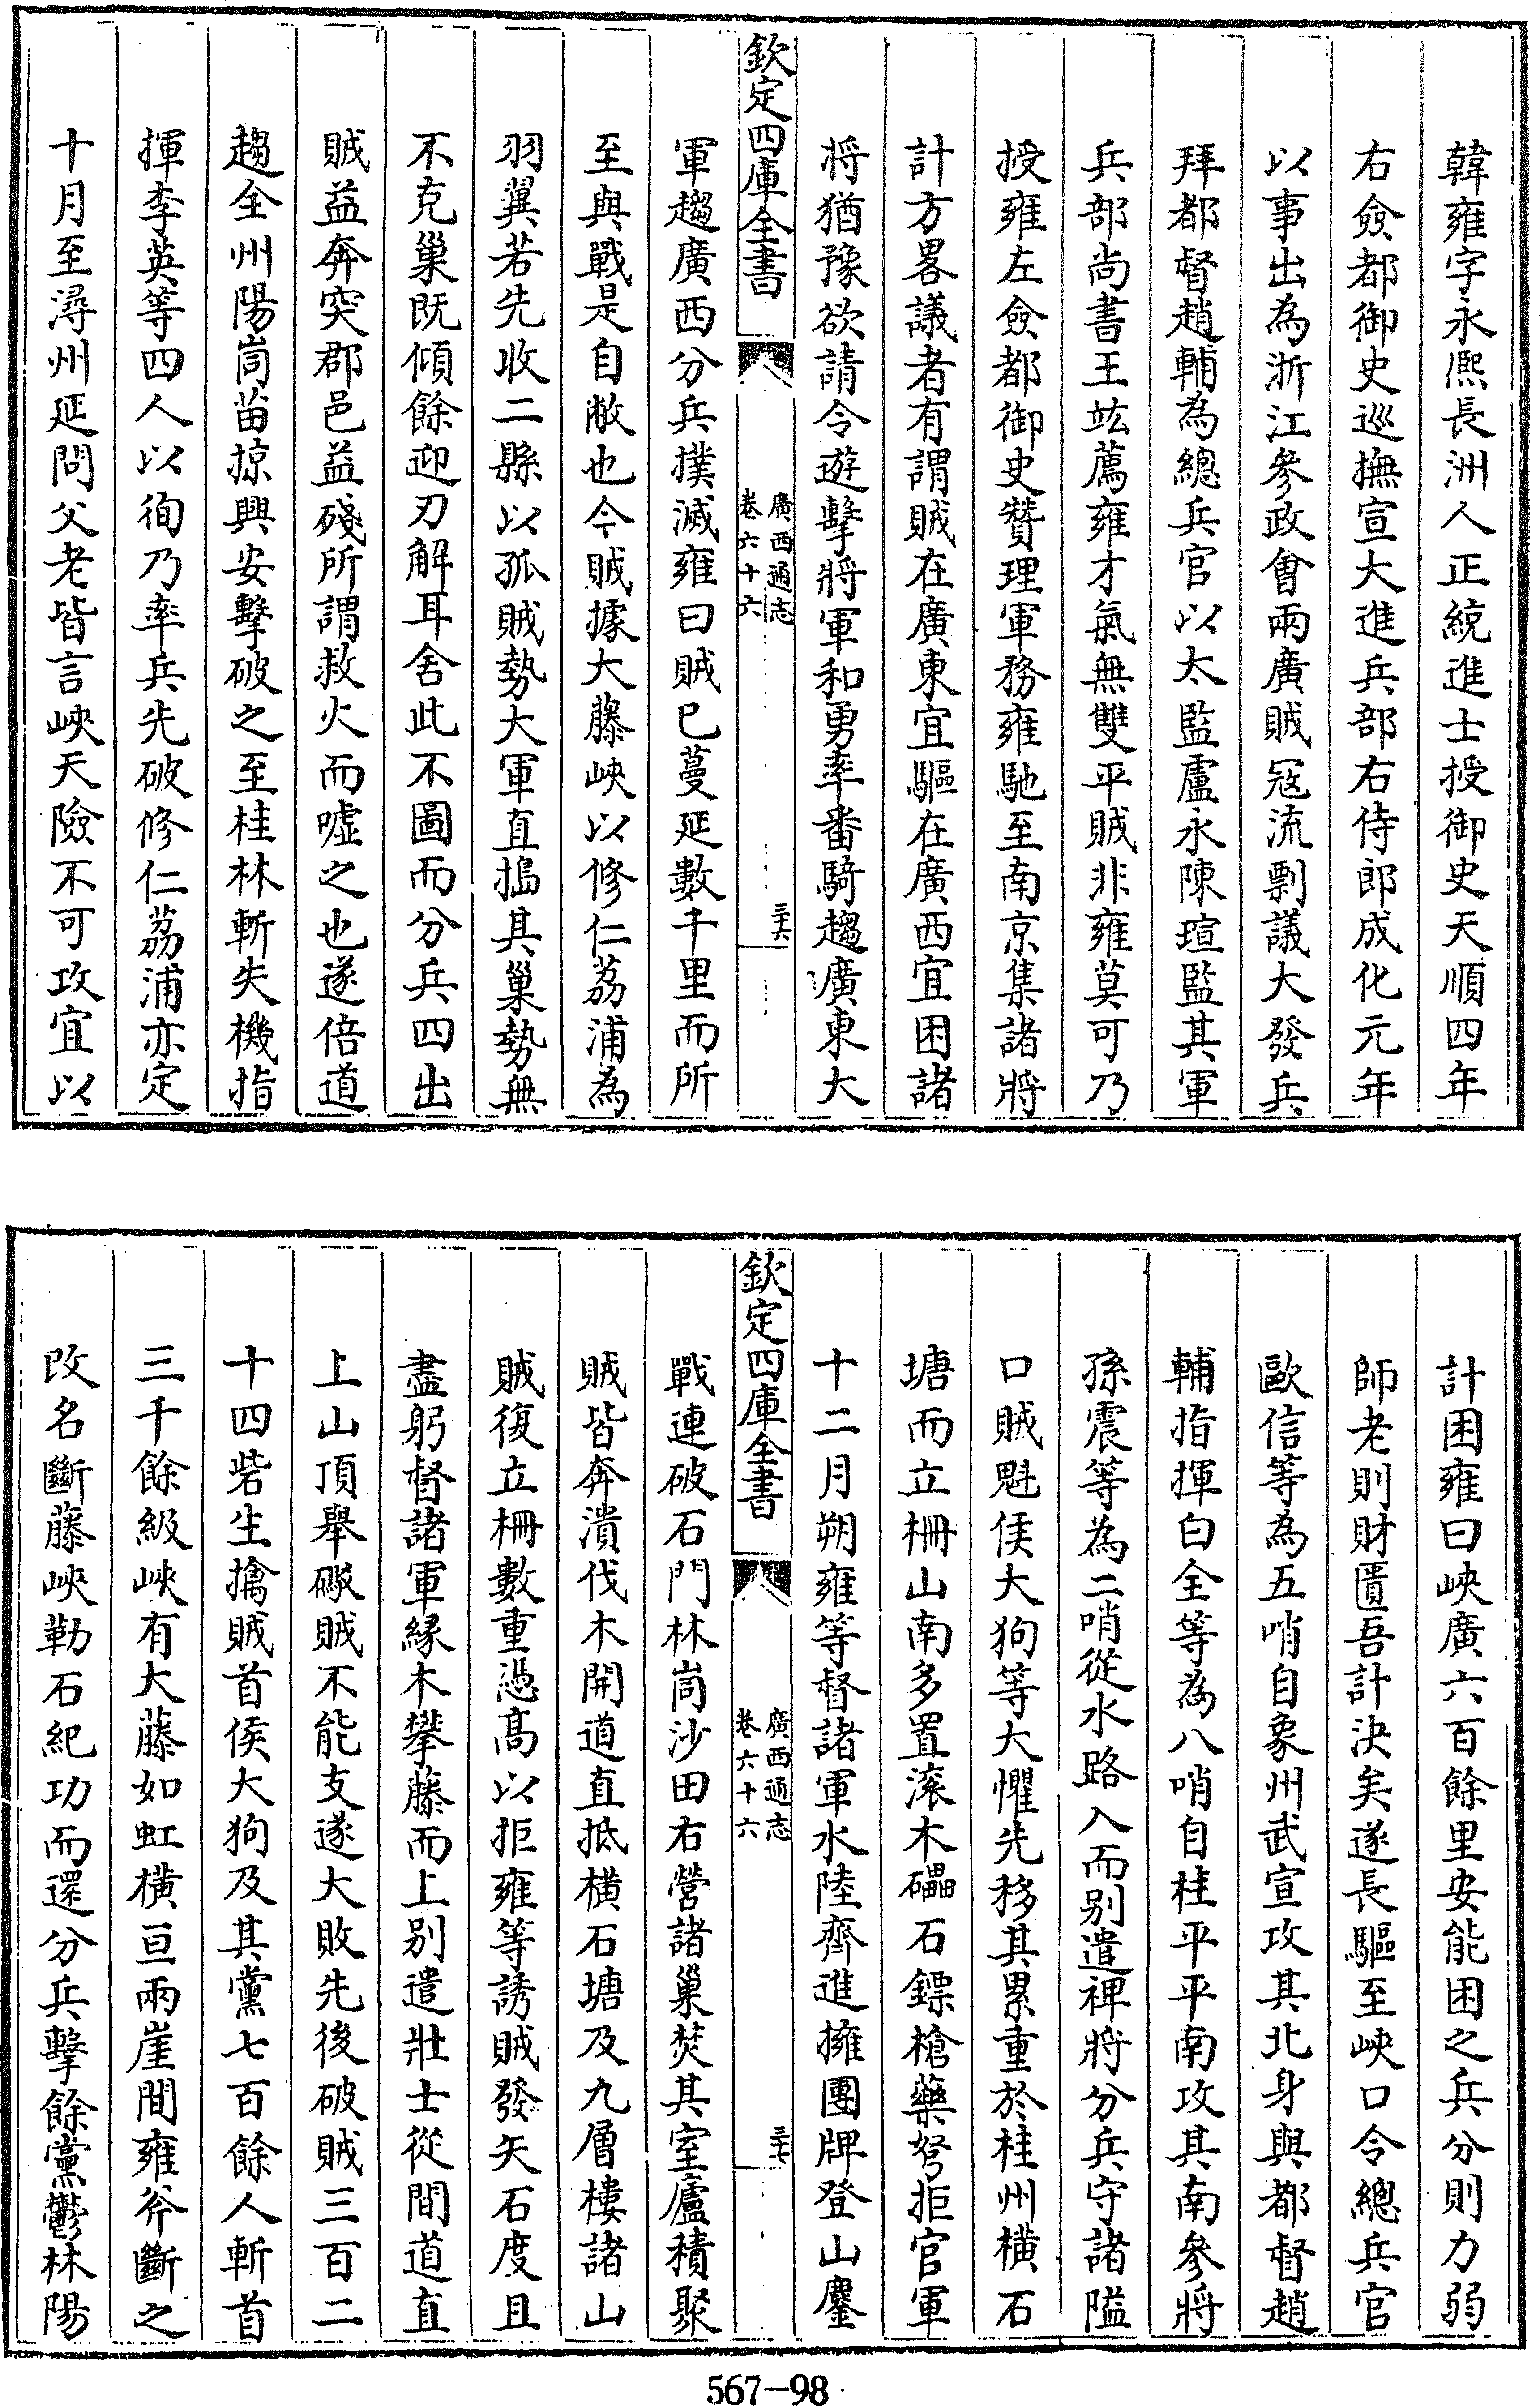 韓雍字永熈長洲人正統進士授御史天順四年
右僉都御史巡撫宣大進兵部右侍郎成化元年
以事出為浙江參政會兩廣賊冦流剽議大發兵
拜都督趙輔為總兵官以太監盧永陳瑄監其軍
兵部尚書王竑薦雍才氣無雙平賊非雍莫可乃
授雍左僉都御史贊理軍務雍馳至南京集諸將
計方畧議者有謂賊在廣東宜驅在廣西宜困諸
將猶豫欲請令遊擊將軍和勇率番騎趨廣東大
欽定四庫全書
廣西通志
卷六十六
三十六
軍趨廣西分兵撲滅雍曰賊已蔓延數千里而所
至與戰是自敝也今賊據大藤峽以修仁荔浦為
羽翼若先收二縣以孤賊勢大軍直搗其巢勢無
不克巢既傾餘迎刃解耳舍此不圖而分兵四出
賊益奔突郡邑益殘所謂救火而噓之也遂倍道
趨全州陽峝苗掠興安擊破之至桂林斬失機指
揮李英等四人以徇乃率兵先破修仁荔浦亦定
十月至潯州延問父老皆言峽天險不可攻宜以
計困雍曰峽廣六百餘里安能困之兵分則力弱
師老則財匱吾計決矣遂長驅至峽口令總兵官
歐信等為五哨自象州武宣攻其北身與都督趙
輔指揮白全等為八哨自桂平平南攻其南參將
孫震等為二哨從水路入而別遣裨將分兵守諸隘
口賊魁侯大狗等大懼先移其累重於桂州橫石
塘而立柵山南多置滚木礧石鏢槍藥弩拒官軍
十二月朔雍等督諸軍水陸齊進擁團牌登山鏖
欽定四庫全書
廣西通志
卷六十六
三十七
戰連破石門林峝沙田右營諸巢焚其室廬積聚
賊皆奔潰伐木開道直抵橫石塘及九層樓諸山
賊復立柵數重憑高以拒雍等誘賊發矢石度且
盡躬督諸軍緣木攀藤而上別遣壯士從間道直
上山頂舉礮賊不能支遂大敗先後破賊三百二
十四砦生擒賊首侯大狗及其黨七百餘人斬首
三千餘級峽有大藤如虹橫亘兩崖間雍斧斷之
改名斷藤峽勒石紀功而還分兵擊餘黨鬱林陽
567-98